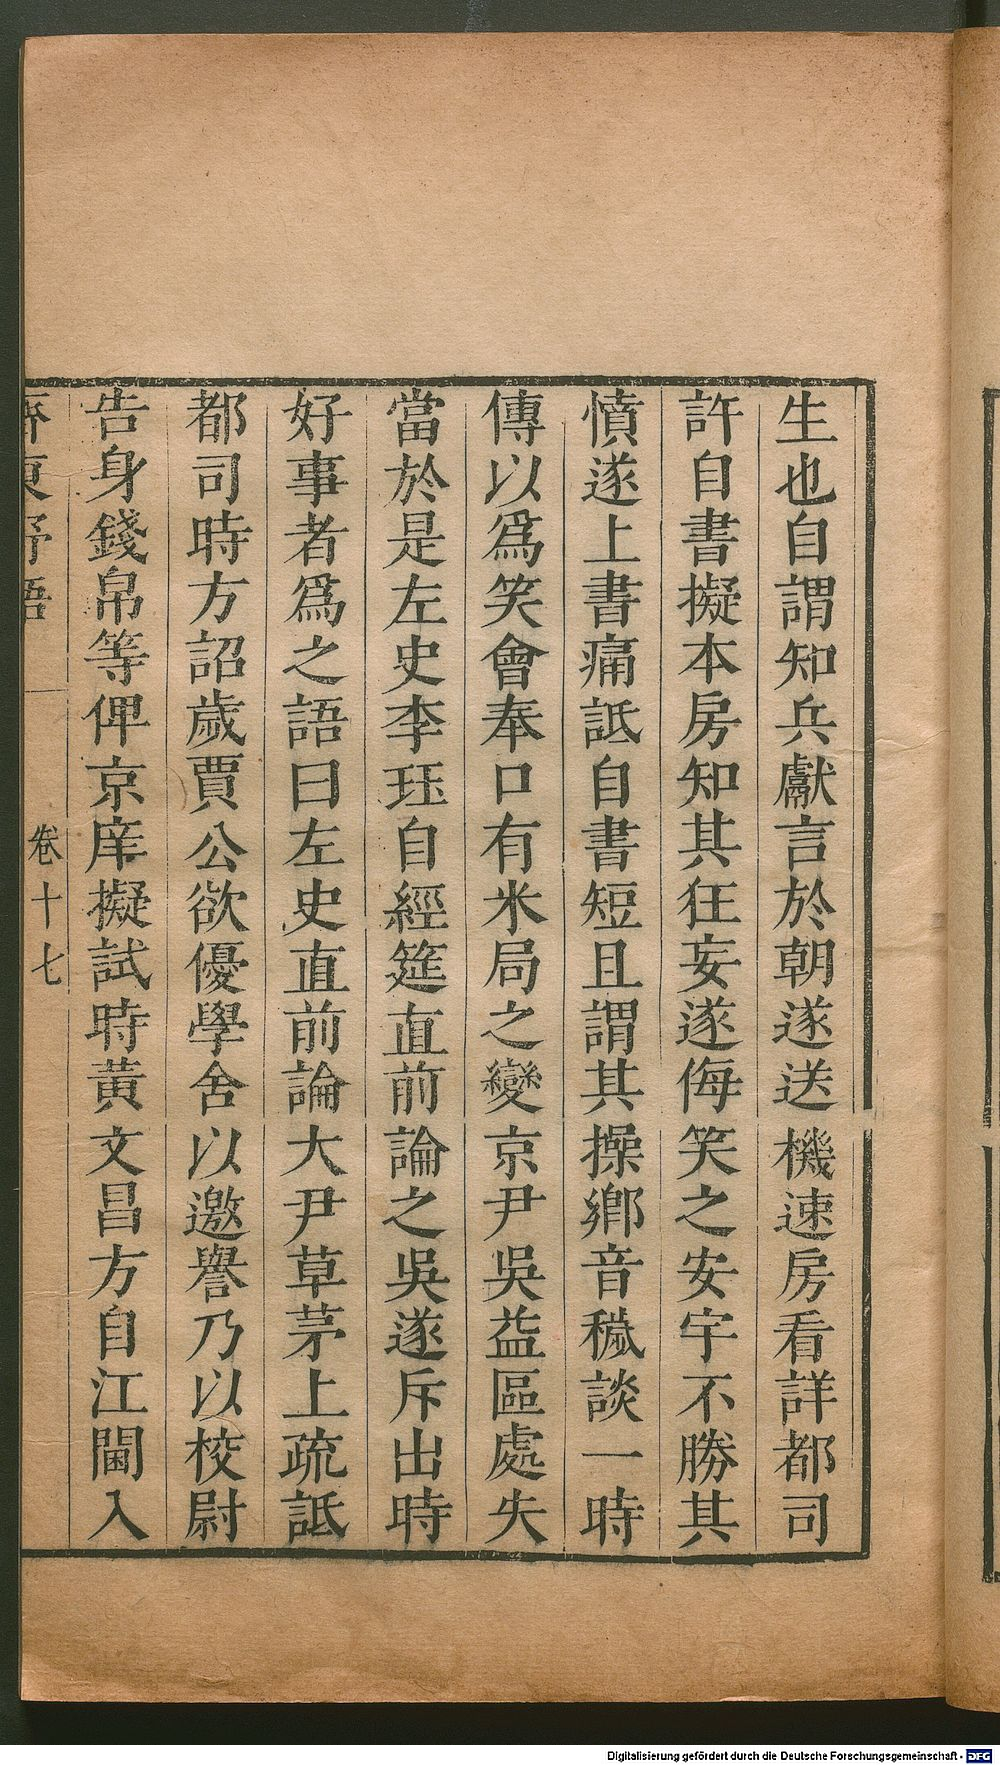 生也自謂知兵獻言於朝遂送機速房看詳都司
許自書擬本房知其狂妄遂侮笑之安宇不勝其
憤遂上書痛詆自書短且謂其操鄉音穢談一時
傳以爲笑會奉口有米局之變京尹吳益區處失
當於是左史李珏自經筵直前論之吳遂斥出時
好事者爲之語曰左史直前論大尹草茅上疏詆
都司時方詔歲賈公欲優學舍以邀譽乃以校尉
告身錢帛等俾京庠擬試時黃文昌方自江閫入
齊東野語
卷十七
Digitalisierung gefördert durch die Deutsche Forschungsgemeinschaft - DFG